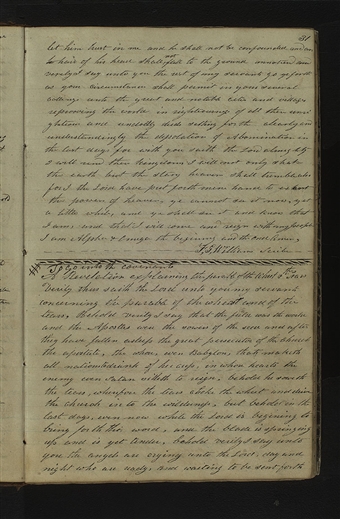 31
let him trust in me and he shall not be confounded and an
hair of his head shall not fall to the ground unnoticed and
verily I say unto you the rest of my servants go ye forth
as your circumstances shall permit in your several
callings unto the great and notable cities and villages
reproving the world in righteousness of all their
understandingly the desolation of Abomination in
the last days for with you saith the Lord almighty
I will rend their kingdoms I will not only shake
the earth but the starry heavens shall tremble
for I the Lord have put forth mine hand to exert
the powers of heaven, ye cannot see it now, yet
a little while, and ye shall see it and know that
I am, and that I will come and reign with my people
I am Alpha & Omega the begining and the end Amen,
F G Williams Scribe
To go into the covenants
A Revelation explaining the parable of the wheat & Tares
Verily thus saith the Lord unto you my servants
concerning the parable of the wheat and of the
tares, Behold verily I say that the field was the world
and the Apostles were the sowers of the seed and after
they have fallen asleep the great persecutor of the church
the apostate, the whore, even Babylon, that maketh
all nations to drink of her cup, in whose hearts the
enemy even Satan sitteth to reign, behold he soweth
the tares, wherefore the tares choke the wheat and drive
the church in to the wilderness, but behold in the
last days, even now while the Lord is begining to
bring forth the word, and the blade is springing
up and is yet tender, behold verily I say unto
you the angels are crying unto the Lord, day and
night who are ready and waiting to be sent forth